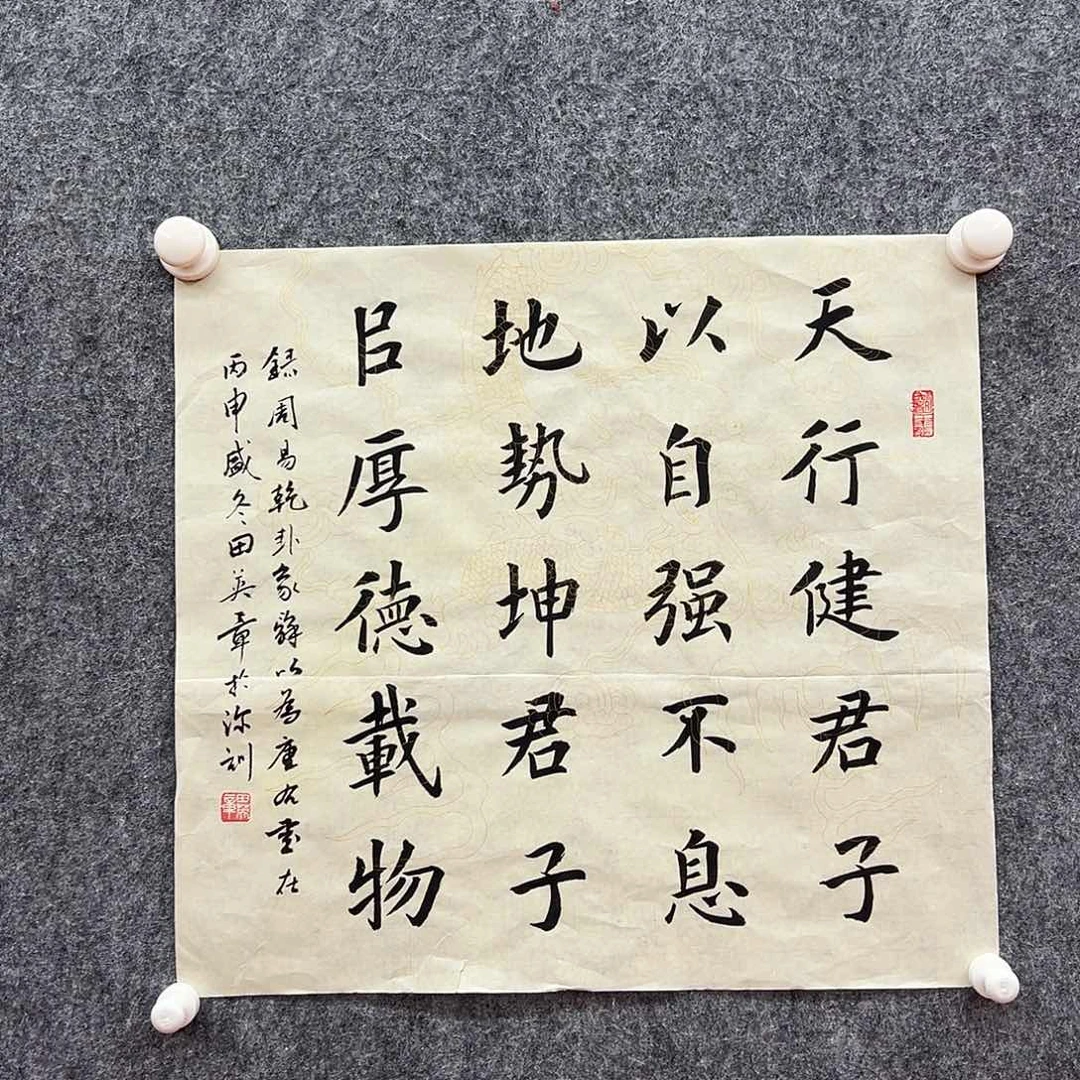 天行健君子
以自强不息
地勢坤君子
㠯厚德載物
録周易乾卦象辭以為座右書在
丙申盛冬田英章於深圳